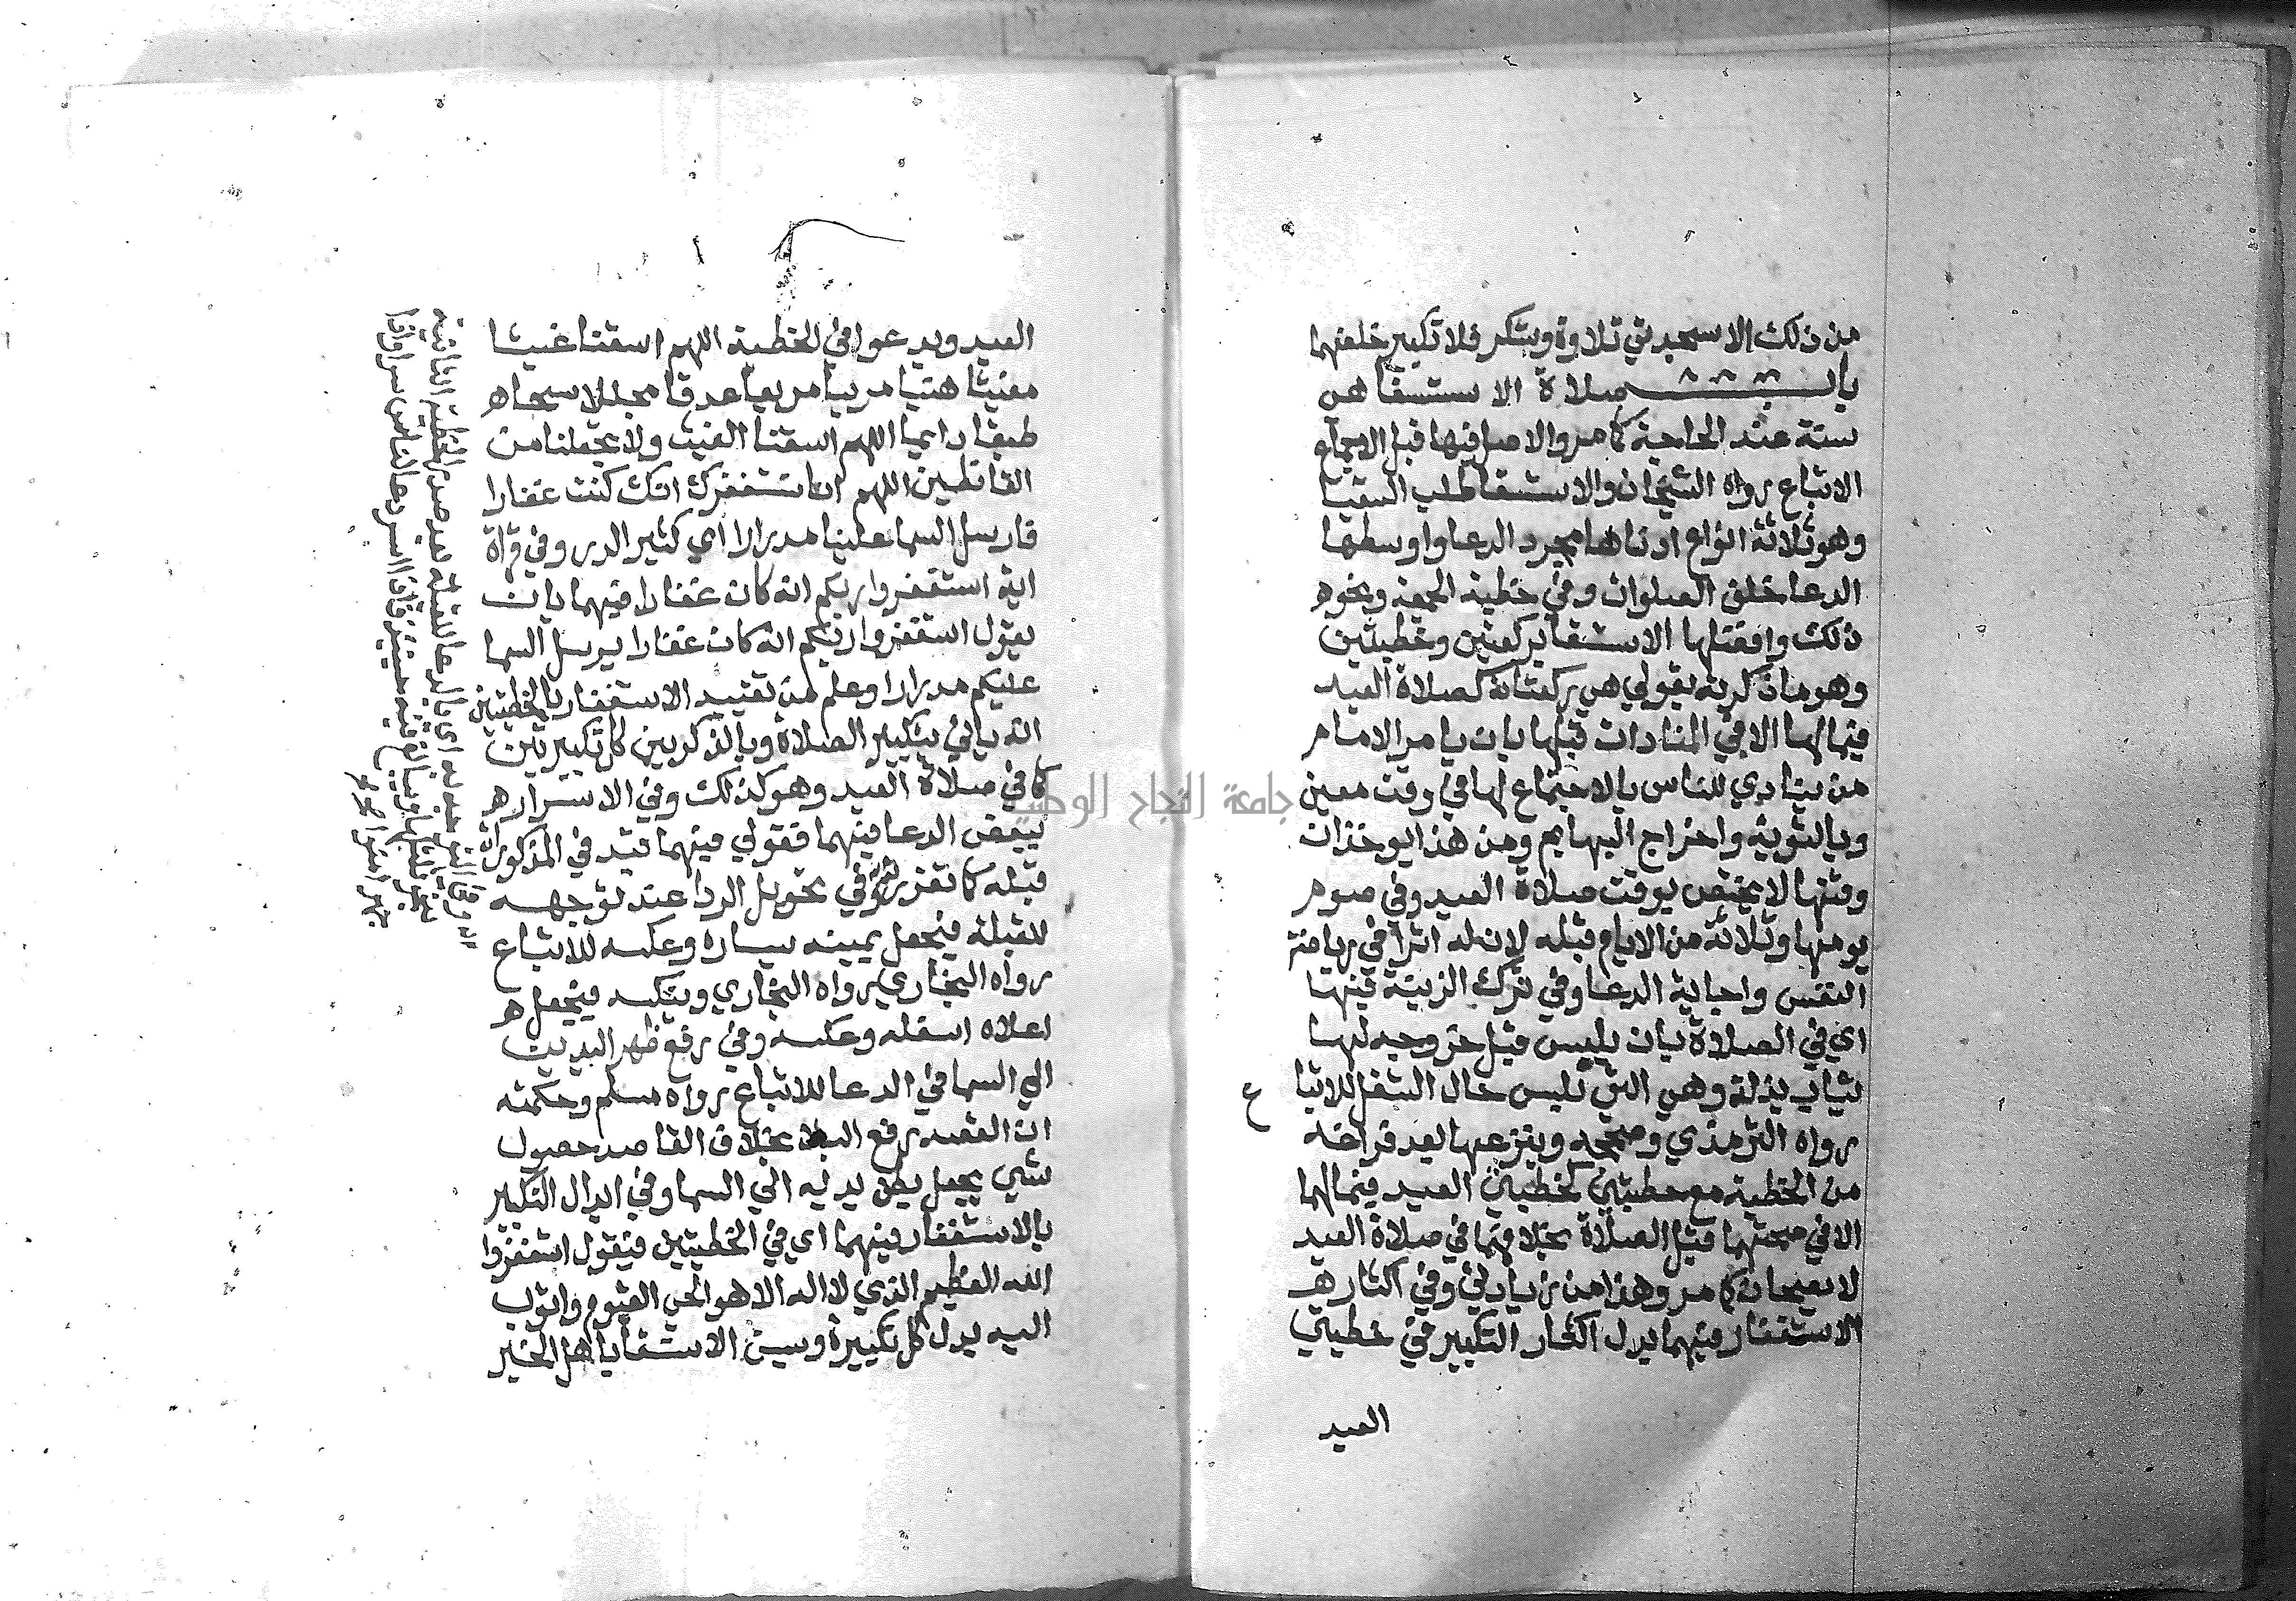 من ذلك الا سجدتي تلاوة وشكر فلا تكبير خلفهما
باب صلاة الاستسقا هي
سنة عند الحاجة كما مر والاصل فيها قبل الاجماع
الاتباع رواه الشيخان والاستسقا طلب السقيا
وهو ثلاثة انواع ادناها مجرد الدعا واوسطها
الدعا خلف الصلوات وفي خطبة الجمعة ونحوه
ذلك وافضلها الاستسقا بركعتين وخطبتين
وهو ما ذكرته بقولي هي ركعتان كصلاة العيد
فيما لها الا في المنادات قبلها بان يامر الامام
من ينادي للناس بالاجتماع لها في وقت معين
وبالتوبة واخراج البهايم ومن هذا يوخذ ان
وقتها لا يختص بوقت صلاة العيد وفي صوم
يومها وثلاثة من الايام قبله لان له اثرا في رياضة
النفس واجابة الدعا وفي ترك الزينة فيها
اي في الصلاة بان يلبس قبل خروجه لها
ثياب بذلة وهي التي تلبس حال الشغل للاتبا
ع
رواه الترمذي وصححه وينزعها بعد فراغه
من الخطبة مع خطبتين كخطبتي العيد فيما لهما
الا في صحتهما قبل الصلاة بخلافهما في صلاة العيد
لا يصحان كما مر وهذا من زيادتي وفي اكثار
الاستغفار فيهما بدل اكثار التكبير في خطبتي
العيد
العيد ويدعوا في الخطبة اللهم اسقنا غيثا
مغيثا هنيا مريا مريعا غدقا مجللا سحا
طبقا دايما اللهم اسقنا الغيث ولا تجعلنا من
القانطين اللهم انا نستغفرك انك كنت غفارا
فارسل السما علينا مدرارا اي كثير الدر وفي قراة
اية استغفروا ربكم انه كان غفارا فيهما بان
يقول استغفروا ربكم انه كان غفارا يرسل السما
عليكم مدرارا وعلم من تقييد الاستغفار بالخطبتين
انه ياتي بتكبير الصلاة وبالذكر بين كل تكبيرتين
كما في صلاة العيد وهو كذلك وفي الاسرار
ببعض الدعا فيهما فقولي فيهما قيد في المذكورات
قبله كما تقرر وفي تحويل الردا عند توجهه
للقبلة فيجعل يمينه يساره وعكسه للاتباع
رواه البخاري رواه البخاري وينكسه فيجعل
اعلاه اسفله وعكسه وفي رفع ظهر اليدين
الي السما في الدعا للاتباع رواه مسلم وحكمته
ان القصد رفع البلا بخلاف القاصد حصول
شي يجعل بطن يديه الي السما وفي ابدال التكبير
بالاستغفار فيهما اي في الخطبتين فيقول استغفروا
الله العظيم الذي لا اله الا هو الحي القيوم واتوب
اليه بدل كل تكبيرة وسن الاستسقا باهل الخير
جامعة النجاح الوطنية